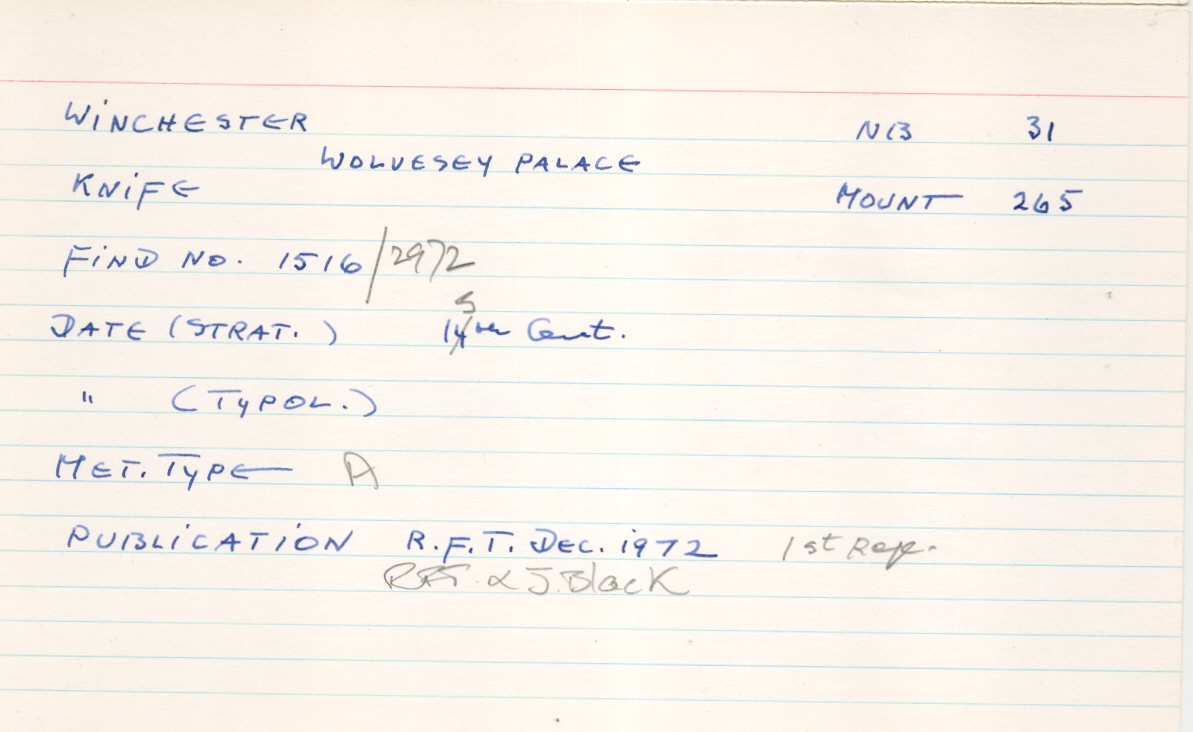 WINCHESTER NB 31
WOLVESEY PALACE
KNIFE MOUNT 265
FIND NO. 1516/2972
5
DATE (STRAT.) 14th Cent.
" (TYPOL.)
MET. TYPE A
PUBLICATION R.F.T. DEC. 1972 1st Rep.
RFT. & J. Black